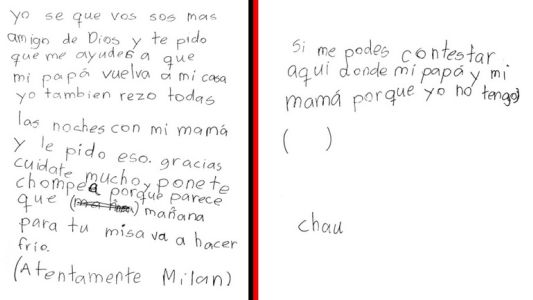 yo se que vos sos mas
amigo de Dios y te pido
que me ayudes a que
mi papá vuelva a mi casa
yo tambien rezo todas
las noches con mi mamá
y le pido eso. gracias
cuidate mucho y ponete
chompea porque parece
que mañana
para tu misa va a hacer
frio.
(Atentamente Milan)
si me podes contestar
aqui donde mi papá y mi
mamá porque yo no tengo)
( )
chau